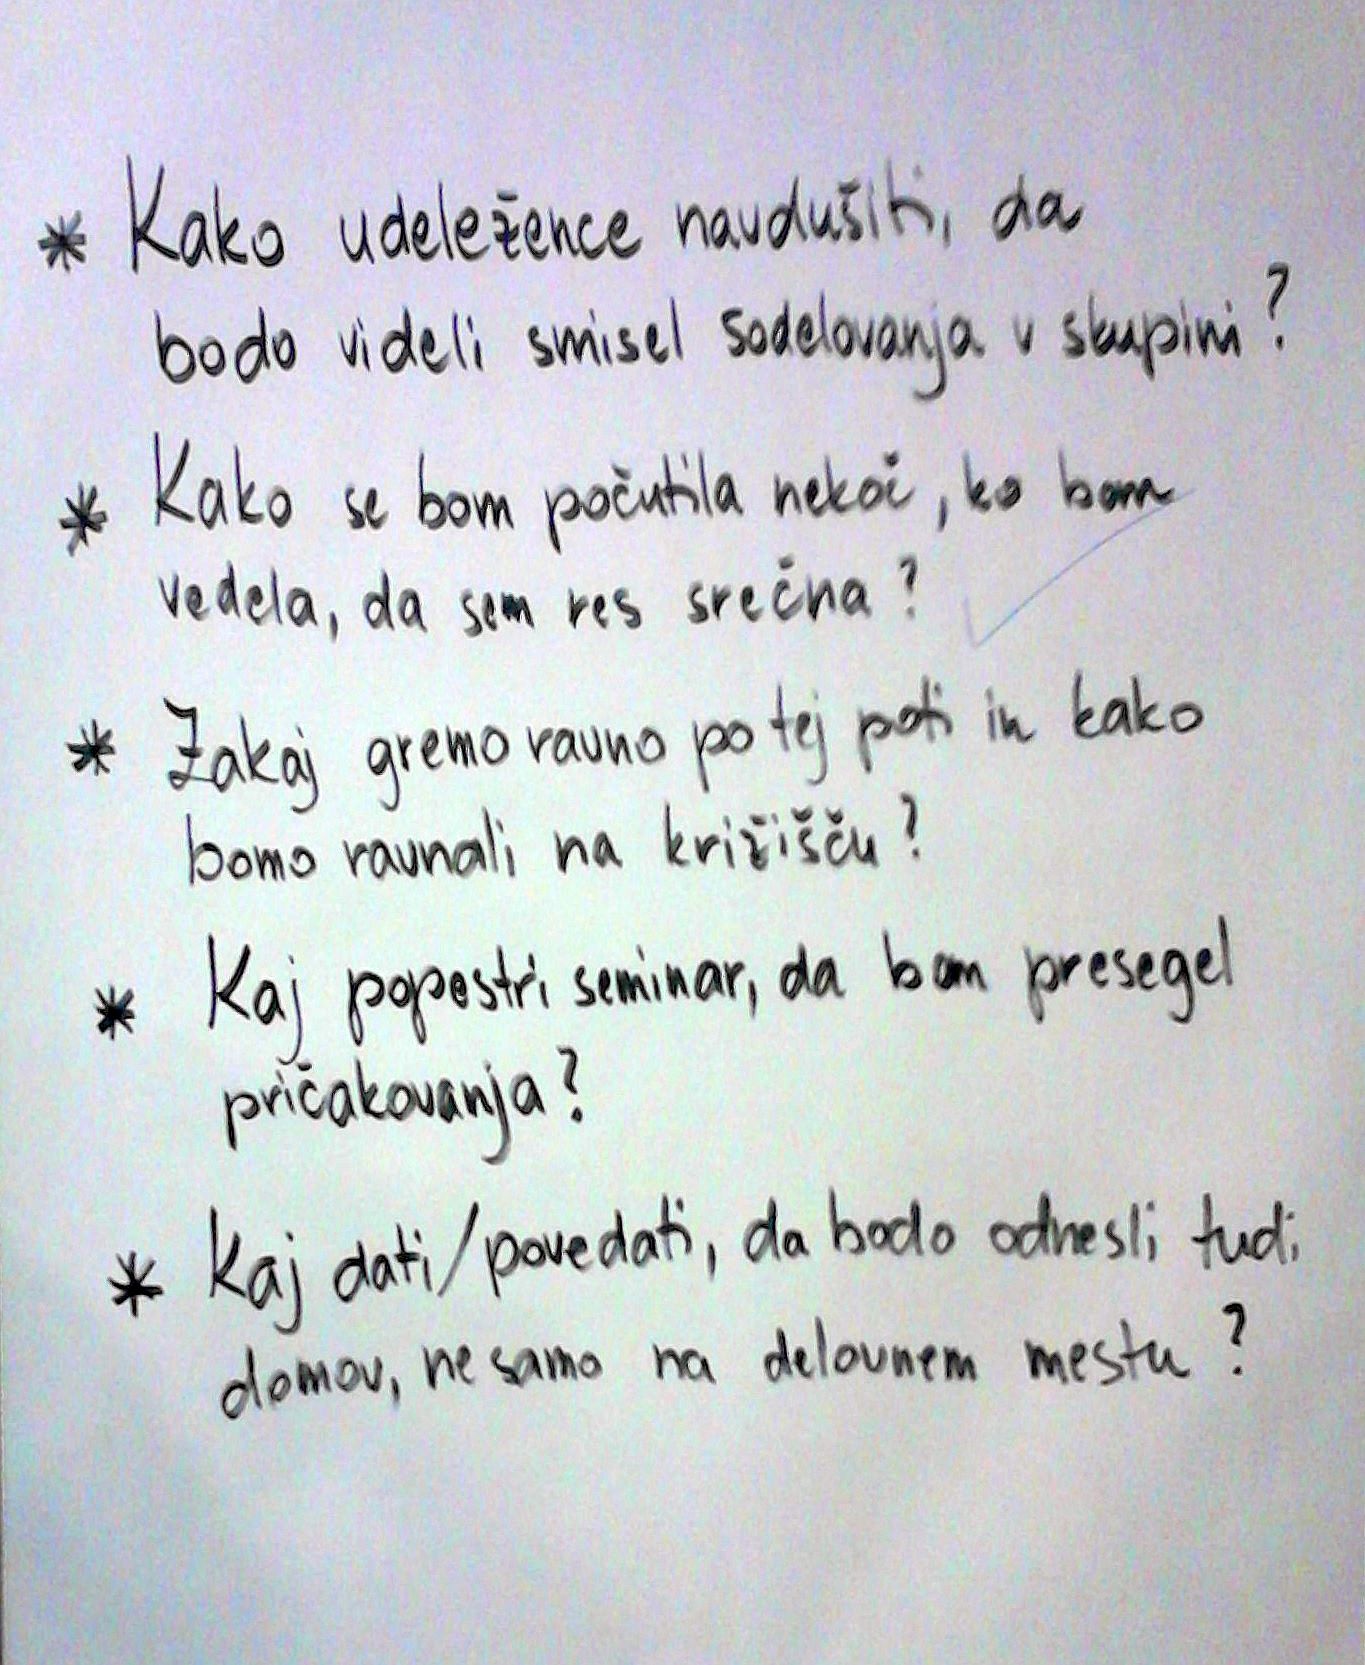 * Kako udeležence navdušiti, da
bodo videli smisel sodelovanja v skupini?
* Kako se bom počutila nekoč, ko bom
vedela, da sem res srečna?
* Zakaj gremo ravno po tej poti in kako
bomo ravnali na križišču?
* Kaj popestri seminar, da bom presegel
pričakovanja?
* Kaj dati/povedati, da bodo odnesli tudi
domov, ne samo na delovnem mestu?